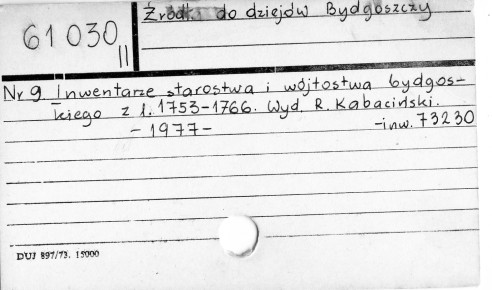 Źródła do dziejów Bydgoszczy
61 030
II
Nr 9 Inwentarze starostwa i wójtostwa bydgos-
kiego z l. 1753-1766. Wyd. R. Kabaciński.
- 1977 -
-inw. 73230
DUJ 897/73. 15000